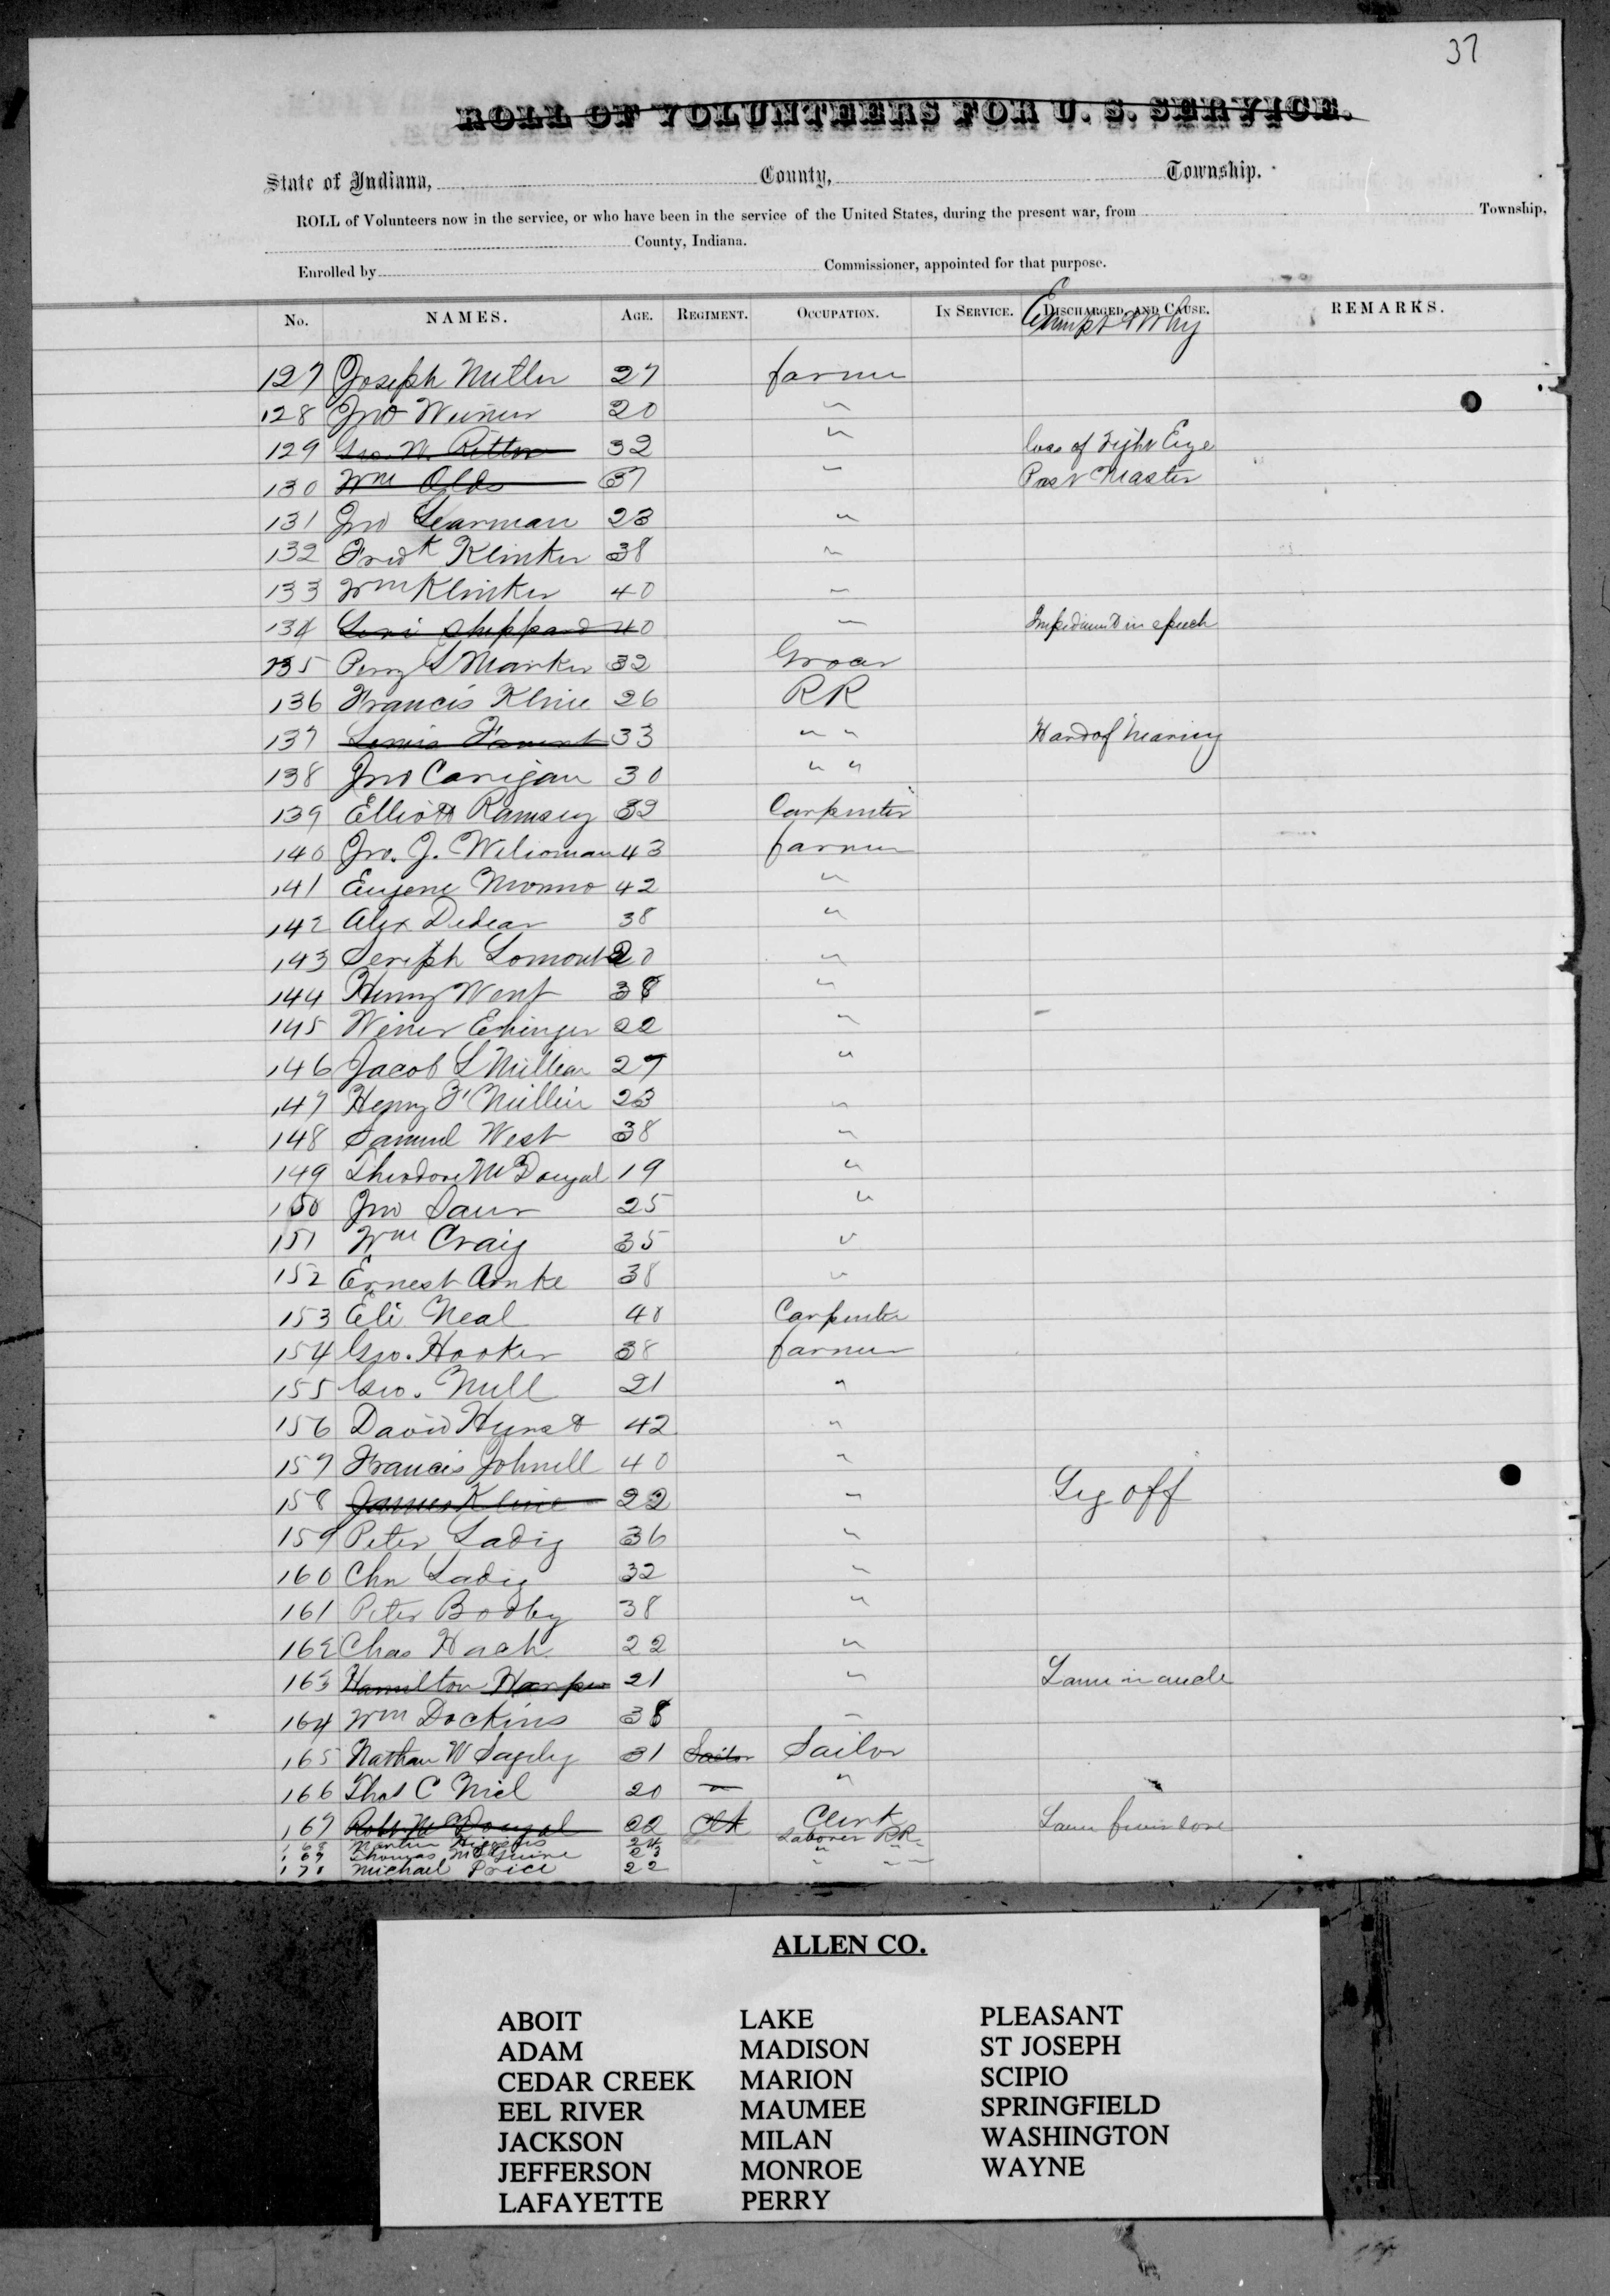 37
ROLL OF VOLUNTEERS FOR U. S. SERVICE.
State of Indiana, County, Township.
ROLL of Volunteers now in the service, or who have been in the service of the United States, during the present war, from Township,
County, Indiana.
Enrolled by Commissioner, appointed for that purpose.
No. NAMES. AGE. REGIMENT. OCCUPATION. IN SERVICE. DISCHARGED, AND CAUSE. REMARKS.
Exempt & Why
127 Joseph 27 farmer
128 Jno 20 "
129 Geo. W. Ritter 32 " loss of right Eye
130 Wm Olds 37 " Post Master
131 Jno Learman 23 "
132 Fredk Klinker 38 "
133 Wm Klinker 40 "
134 Levi Sheppard 40 " Impediment in speech
135 Perry S Marker 32 Grocer
136 Francis Kline 26 RR
137 Lewis 33 " " Hard of hearing
138 Jno Carigan 30 " "
139 Elliott Ramsey 32 Carpenter
140 Jno. J. 43 farmer
141 Eugene Monno 42 "
142 Alex Dedear 38 "
143 Seriph Lomont 20 "
144 Henry Went 38 "
145 Ehinger 22 "
146 Jacob S 27 "
147 Henry F 23 "
148 Samuel West 38 "
149 Theodore McDougal 19 "
150 Jno Saur 25 "
151 Wm Craig 35 "
152 Ernest Amke 38 "
153 Eli Neal 40 Carpenter
154 Geo. Hooker 38 farmer
155 Geo. Null 21 "
156 David Hurst 42 "
157 Francis 40 "
158 James Kline 22 " Leg off
159 Peter Ladig 36 "
160 Chn Ladig 32 "
161 Peter 38 "
162 Chas Hach 22 "
163 Hamilton Harper 21 " Lame in ancle
164 Wm Dockins 38 "
165 Nathan W 31 Sailor Sailor
166 Thos C Niel 20 " "
167 Robt McDougal 22 Clk Clerk Lame
168 Martin Higgins 24 Laborer RR
169 Thomas McGuire 23 " "
170 Michael Price 22 " "
ALLEN CO.
ABOIT LAKE PLEASANT
ADAM MADISON ST JOSEPH
CEDAR CREEK MARION SCIPIO
EEL RIVER MAUMEE SPRINGFIELD
JACKSON MILAN WASHINGTON
JEFFERSON MONROE WAYNE
LAFAYETTE PERRY